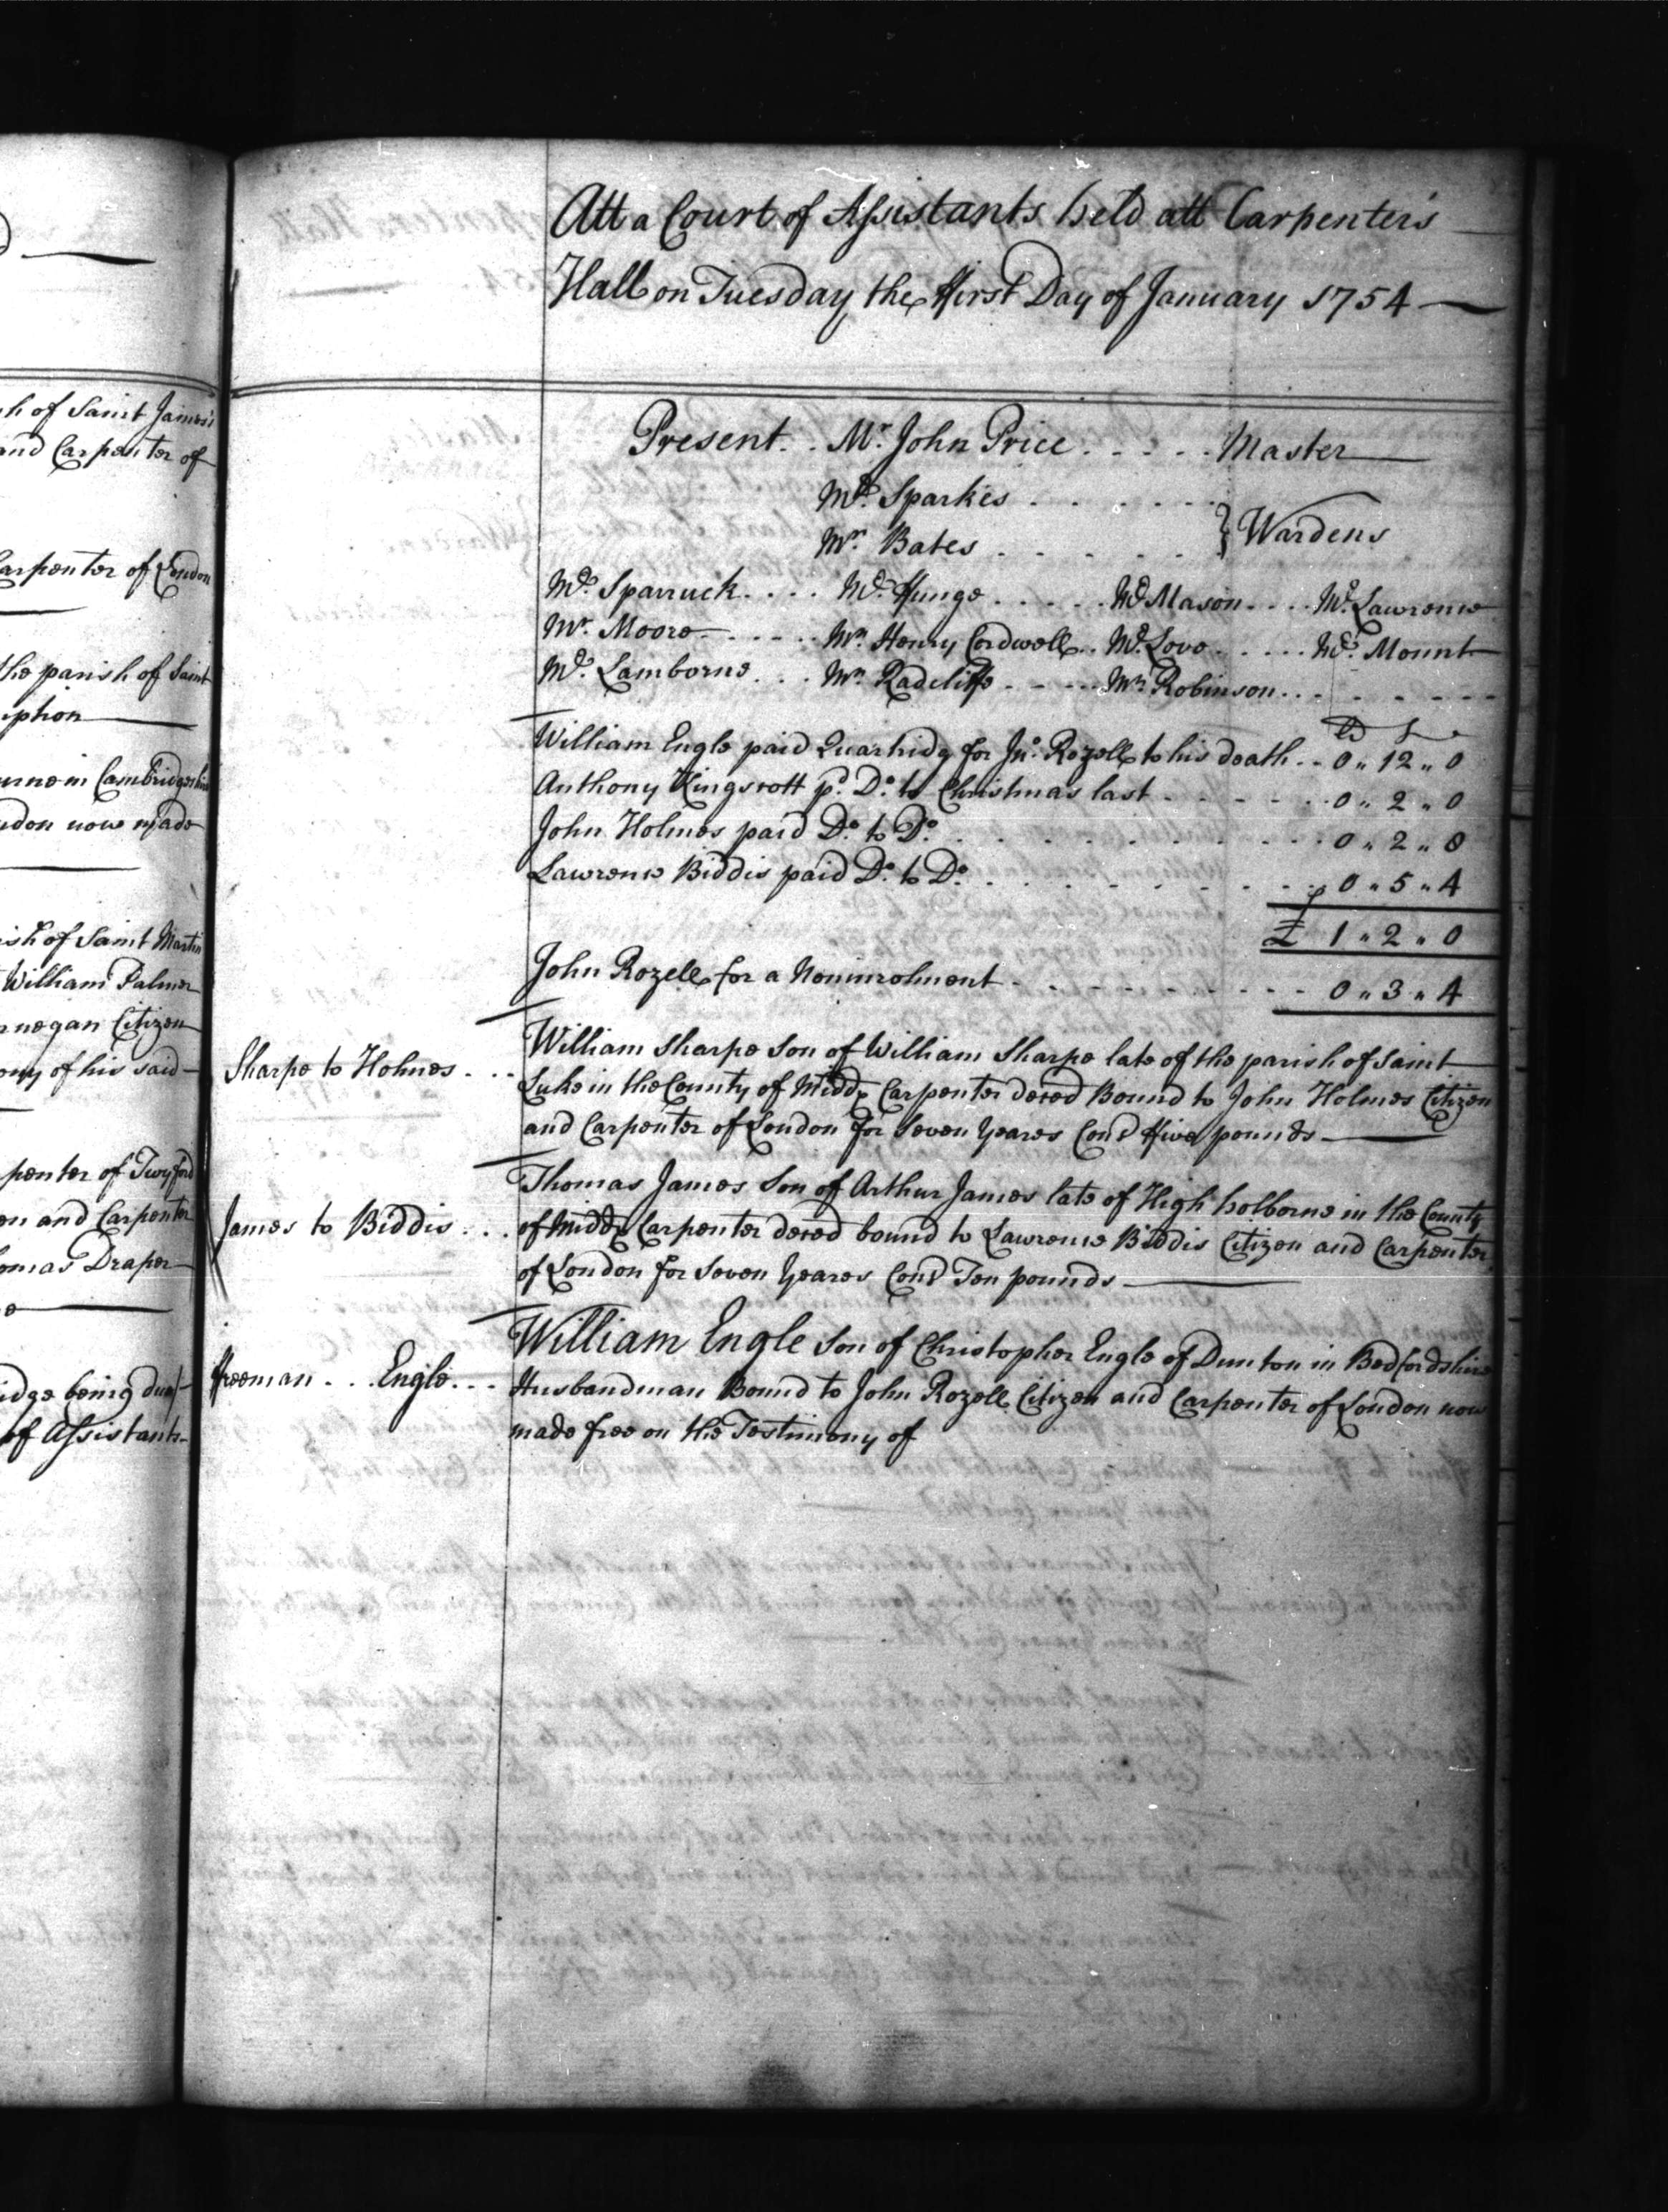 h of Saint James's
and Carpenter of
Carpenter of London
the parish of Saint
iption
urne in Cambridgeshire
ndon now made
ish of Saint Martin
William Palmer
negan Citizen
ony of his said
penter of Twyford
en and Carpenter
omas Draper
idge being due
of Assistants
Att a Court of Assistants held att Carpenter's
Hall on Tuesday the First Day of January 1754
Present . . Mr. John Price . . . . . Master
Mr. Sparkes . . . . . .
Mr. Bates . . . . . . } Wardens
Mr. Sparruck . . . . Mr. Hunge . . . . . Mr. Mason . . . . Mr. Lawrence
Mr. Moore . . . . . Mr. Henry Cordwell . . Mr. Love . . . . . Mr. Mount
Mr. Lamborne . . . Mr. Radcliffe . . . . . Mr. Robinson . . . . . . .
William Engle paid Quarteridg for Jno. Rozell to his death . . 0 " 12 " 0
Anthony Kingscott pd. Do. to Christmas last . . . . . . 0 " 2 " 0
John Holmes paid Do. to Do. . . . . . . . . . . 0 " 2 " 8
Lawrence Biddis paid Do. to Do. . . . . . . . . . 0 " 5 " 4
£ 1 " 2 " 0
John Rozell for a Noninrolment . . . . . . . . . 0 " 3 " 4
Sharpe to Holmes . . .
William Sharpe Son of William Sharpe late of the parish of Saint
Luke in the County of Middx Carpenter deced Bound to John Holmes Citizen
and Carpenter of London for Seven Yeares Cond Five pounds
James to Biddis . . .
Thomas James Son of Arthur James late of High holborne in the County
of Middx Carpenter deced bound to Lawrence Biddis Citizen and Carpenter
of London for Seven Yeares Cond Ten pounds
Freeman . . . Engle . . .
William Engle Son of Christopher Engle of Dunton in Bedfordshire
Husbandman Bound to John Rozell Citizen and Carpenter of London now
made free on the Testimony of